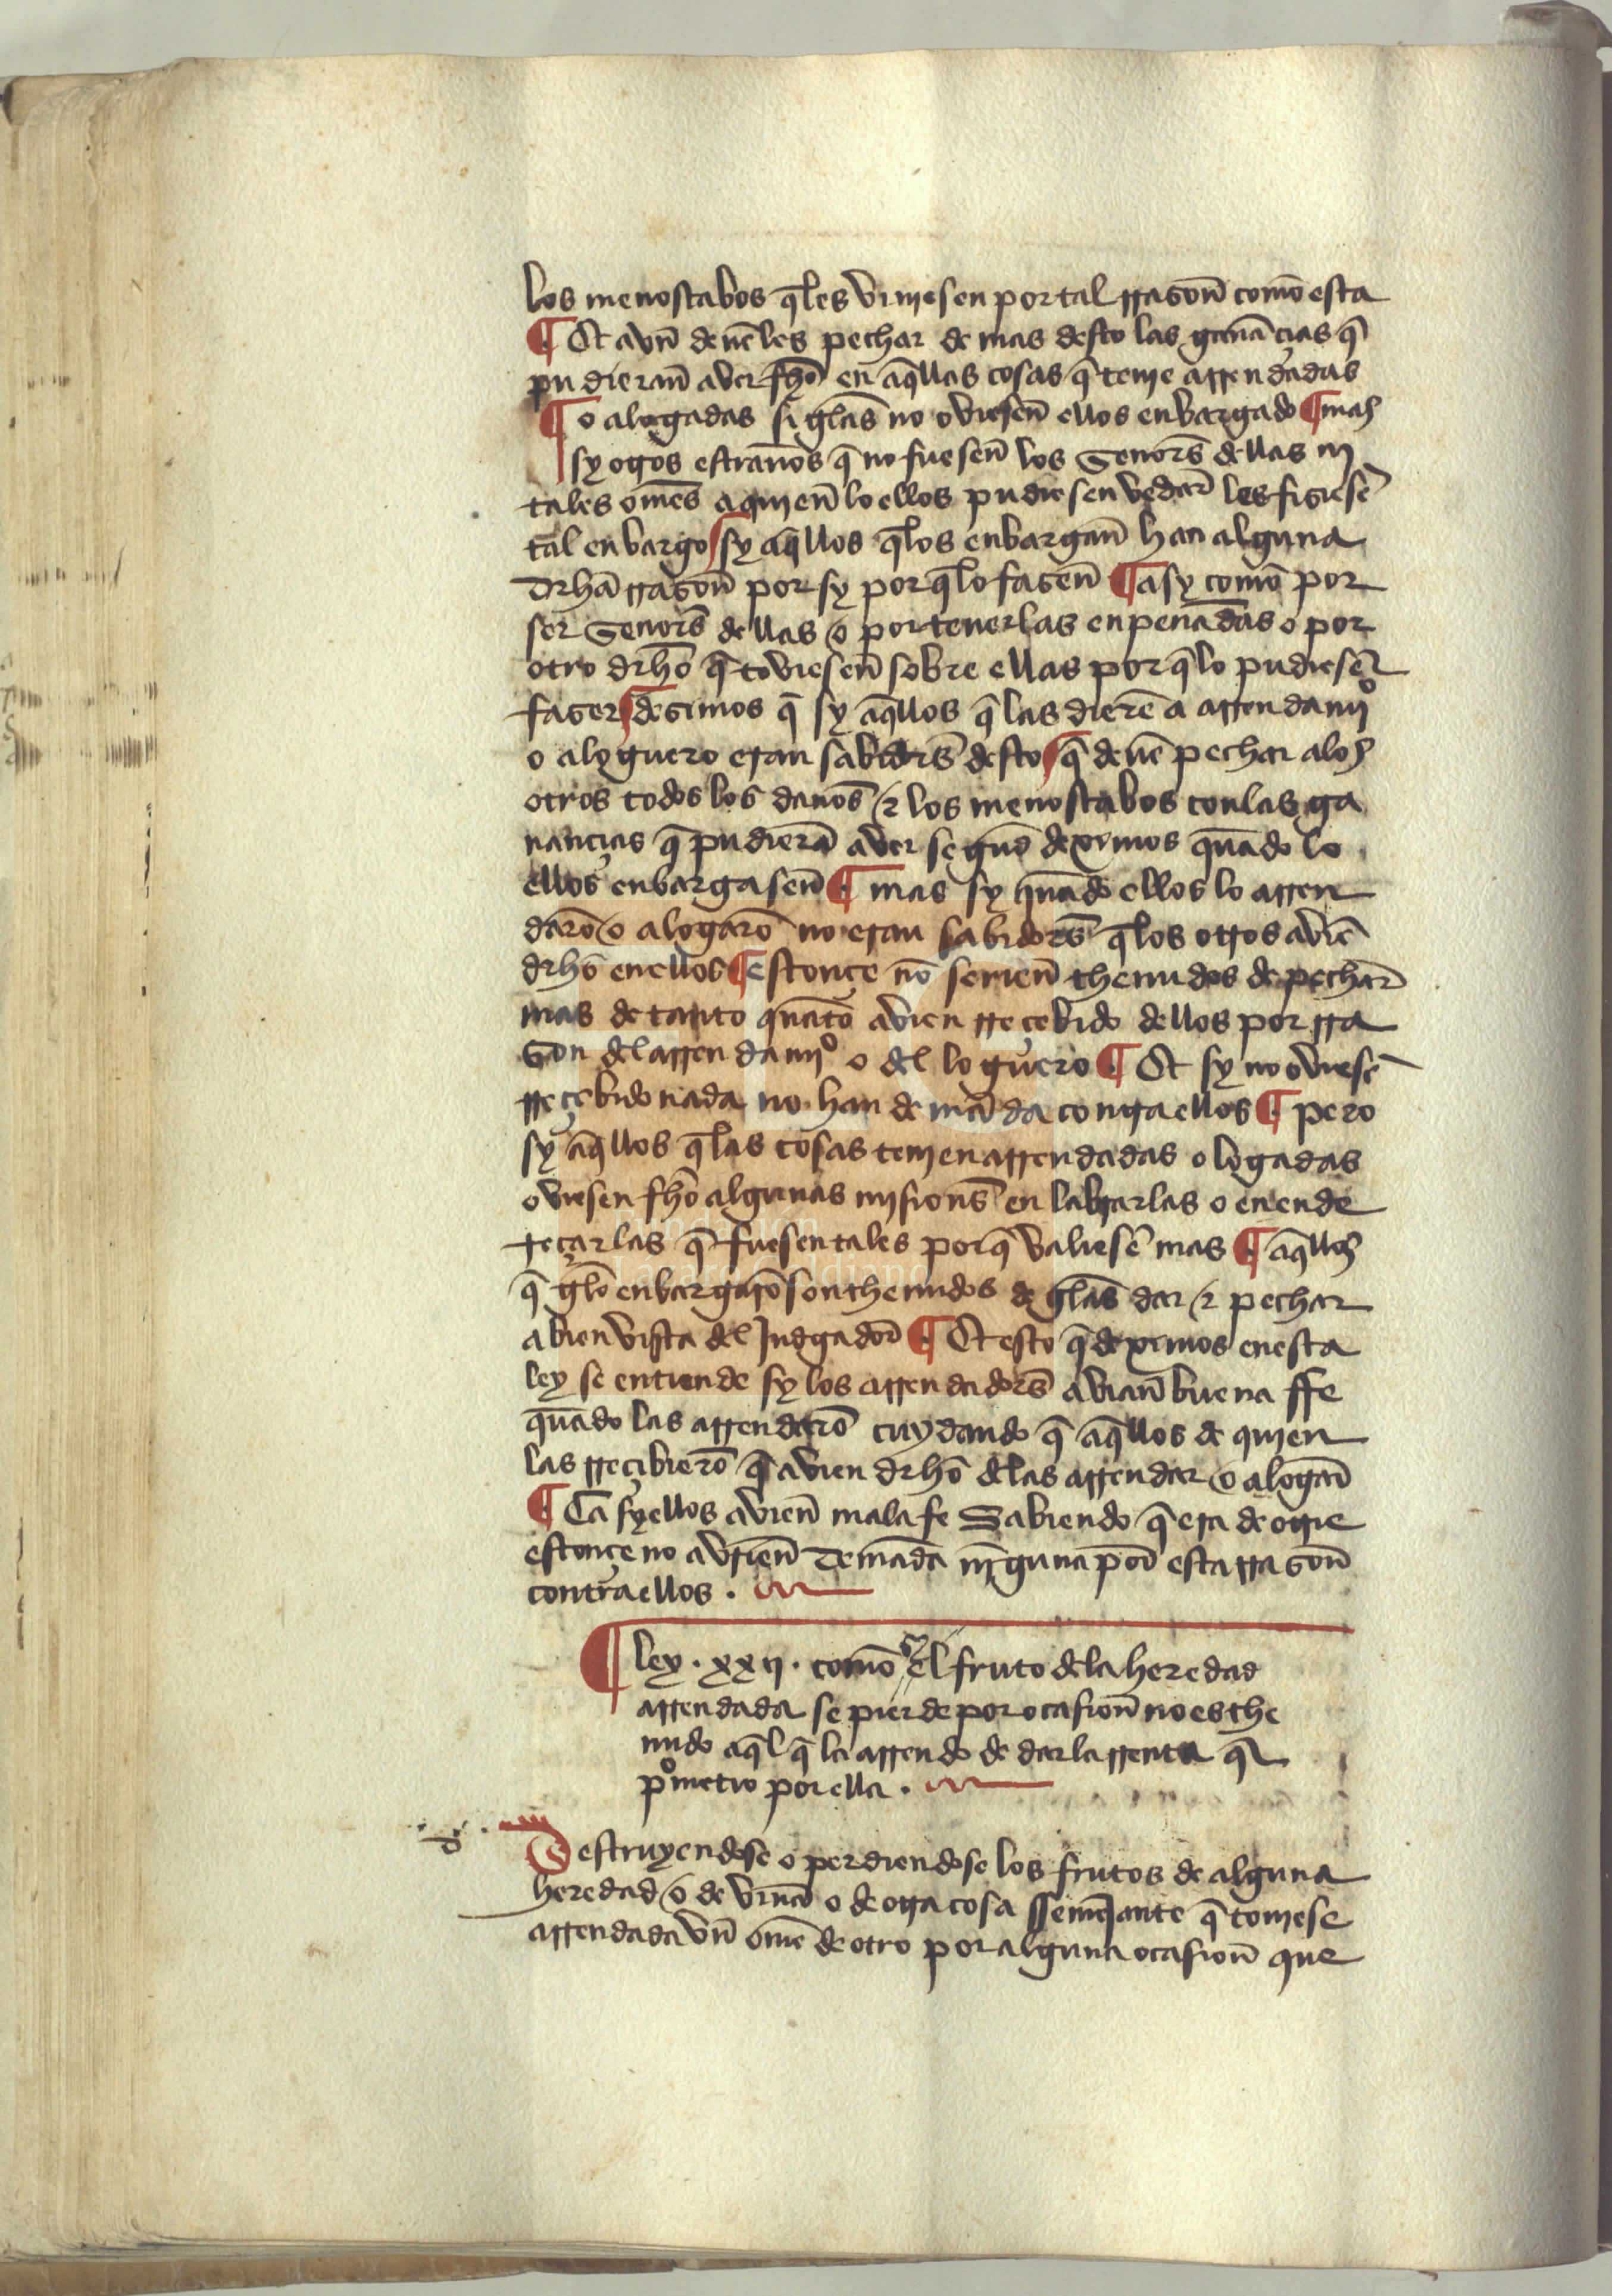 los menoscabos q̃les viniesen por tal rrason̄ comō esta
¶ Et avn̄ deuē les pechar de mas desto las ganāçias q̄
pudieran̄ aver fh̃o en aq̃llas cosas q̄ tenie arrendadas
¶ o alogadas si gelas no oviesen̄ ellos enbargado ¶ mas
sy otros estran̄os q̄ no fuesen̄ los Senors̃ dellas ni
tales om̄es a quien̄ lo ellos pudiesen vedar̄ les fiçiesē
tal enbargo sy aq̃llos q̃los enbargan̄ han alguna
drh̃a rrason̄ por sy por q̃lo fasen̄ ¶ asy comō por
ser Senors̃ dellas o por tener las enpenādas o por
otro drh̃o q̄ toviesen̄ sobre ellas por q̄ lo pudiesē
faser desimos q̄ sy aq̃llos q̄ las dierē a arrendamiº
o aloguero eran sabidors̃ desto q̄ deuē pechar a los
otros todos los danōs & los menoscabos con las ga
nançias q̄ pudierā aver segun̄d deximos quādo lo
ellos enbargasen̄ ¶ mas sy quādo ellos lo arren
darō o alogarō no eran sabidors̃ q̃los otros aviē
drh̃o en ellos ¶ estonçe nō serien̄ thenudos de pechar̄
mas de tanto quātō avien rreçebido dellos por rra
son del arrendamiº o del loguero ¶ Et sy no oviesē
rreçebido nada no han demāda contra ellos ¶ pero
sy aq̃llos q̃las cosas tenien arrendadas o logadas
oviesen fh̃o algunas misions̃ en labrarlas o en ende
reçarlas q̄ fuesen tales porq̄ valiesē mas ¶ aq̃llos
q̄ gelo enbargarō son thenudos de gelas dar & pechar
a bien vista del Judgador̄ ¶ Et esto q̄ deximos en esta
ley se entiende sy los arrendadors̃ avian̄ buena ffe
quādo las arrendarō cuydando q̄ aq̃llos de quien
las rreçibierō q̄ avien drh̃o de las arrendar o alogar̄
¶ Ca sy ellos avien̄ mala fe Sabiendo q̄ era de otrie
estonçe no avrien̄ demāda nīguna por̄ esta rrason̄
contra ellos .
¶ ley . xxij . comō sy el fruto dela heredad
arrendada se pierde por ocasion̄ no es the
nudo aq̃l q̄ la arrendo de dar la rrenta q̄
pºmetio por ella .
d
Destruyendose o perdiendose los frutos de alguna
heredad o de vinā o de otra cosa ssemejante q̄ toviese
arrendada vn̄ omē de otro por alguna ocasion̄ que